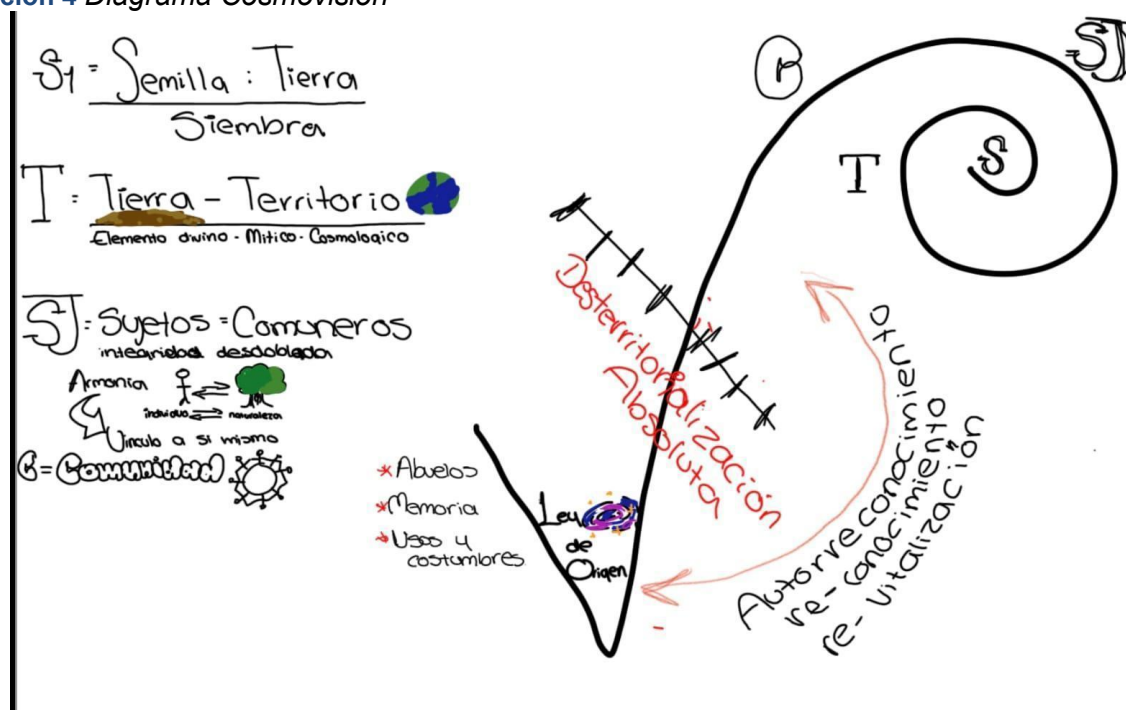 ción 4 Diagrama Cosmovisión
S1 = Semilla : Tierra
Siembra
T = Tierra - Territorio
Elemento divino - Mitico - Cosmologico
SJ = Sujetos = Comuneros
integridad desdoblada
Armonia
individuo naturaleza
Vinculo a si mismo
C = Comunidad
* Abuelos
* Memoria
* Usos y
costumbres
Ley
de
Origen
Desterritorialización
Absoluta
C
=SJ
T
S
Autorreconocimiento
re-conocimiento
re-vitalización